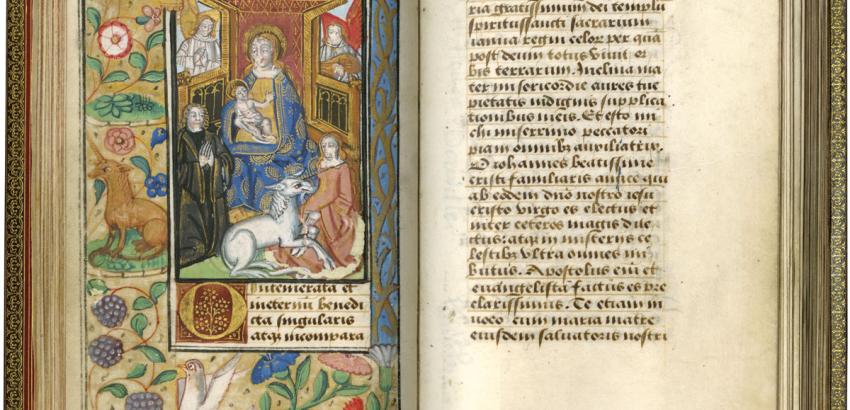 O intemerata et
ineternũ benedi
cta singularis
atqʒ incompara
ria gratissimum dei templũ
spiritussancti sacrarium
ianua regni celoꝝ per quã
post deum totus viuit or
bis terrarum. Inclina ma
ter misericordie aures tue
pietatis indignis supplica
tionibus meis. Et esto mi
chi miserrimo peccatori
piam omnibꝫ auxiliatrix.
O Johannes beatissime
cristi familiaris amice qui
ab eodem dño nostro iesu
cristo virgo es electus et
inter ceteros magis dile
ctus: atqʒ in misteriis ce
lestibus vltra omnes im
butus. Apostolus eniʒ et
euangelista factus es pre
clarissimus. Te etiam in
uoco cum maria matre
eiusdem saluatoris nostri